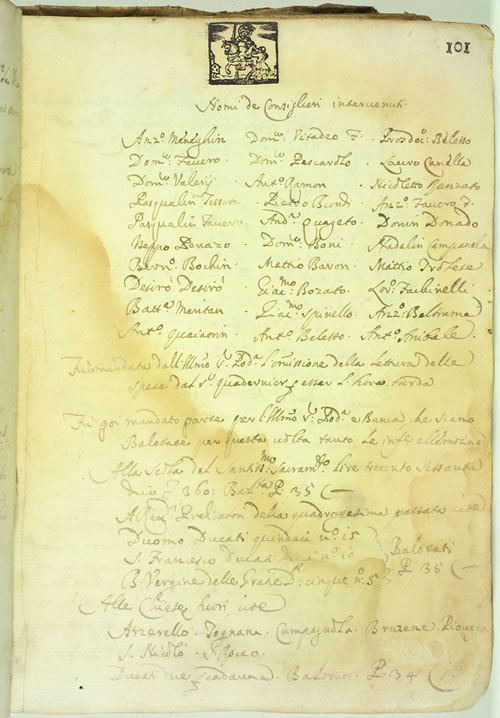 101
Nomi de Consiglieri intervenuti
Anzº Menaghin Domco Vitadeo F. Prosdoc: Beletto
Domco Favero Domco Pescarolo Lauro Candla
Domco Valerij Antº Ramon Nicoletto Ronzato
Pasqualin Tissaro Pietro Biondi Anzº Favero F.
Pasqualin Favero Andª Quageto Donin Donado
Beppo Benazo Domco Boni Nadalin Campavola
Bernº Bochin Mattio Baron Mattio Trolese
Desirò Desirò Giacmo Bozato Lovº Fachinelli
Battª Maritan Giacmo Spinello Anzº Beltrame
Antº Quaiarin Antº Beletto Antº Anibale
Fù comandata dall'Illmo Sr Podª l'omissione della lettura delle
spese dal Sr quadernier p esser l'hora tarda
Fù poi mandato parte per l'Illmo Sr Podª e Banca che siano
Balotate per questa volta tanto le infrte ellemosine
Alla Scola del Santissmo Sacramto lire trecento sessanta
P 35 C —
della quadragesima passata cioè
Duomo Ducati quindeci nº 15
S. Francesco Ducati dieci nº 10
B. Vergine delle Grazie D. cinque nº 5
Balotati
P. 35 C —
Alle Chiese fuori cioè
Arzerello Tognana Campagnola Bruzene Piove
S. Nicolò S. Rocco
Ducati due cadauna Balotati P. 34 C 1